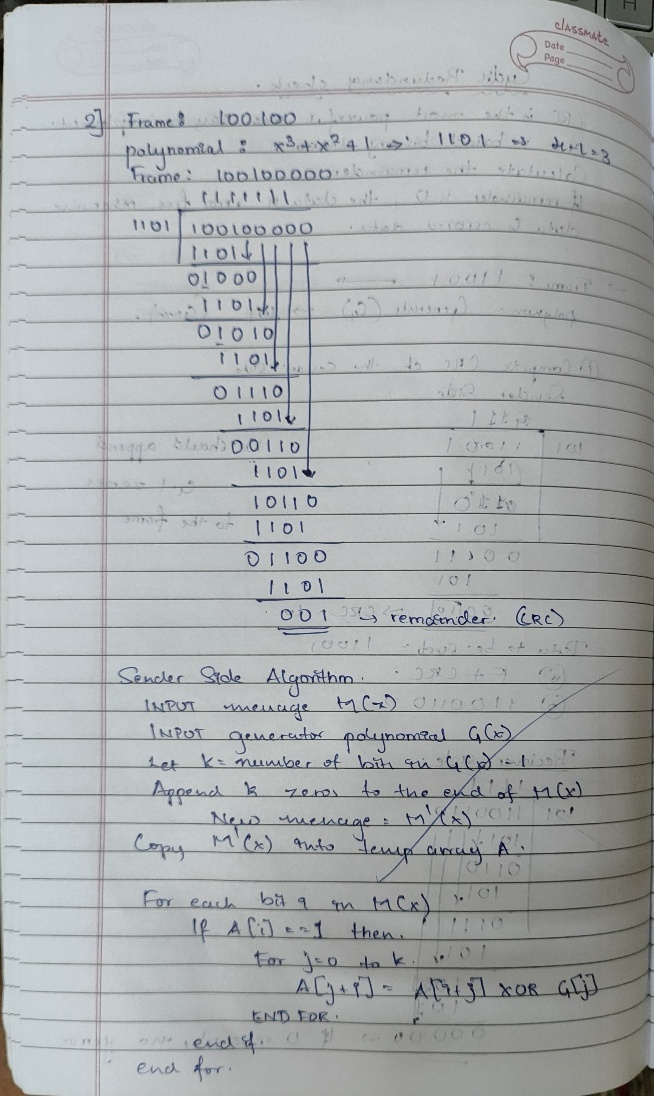 classmate
Date
Page
2] Frame: 100100
polynomial: x³+x²+1 => 1101 => n-1=3
Frame: 100100000
1111111
1101 100100000
1101
01000
1101
01010
1101
01110
1101
00110
1101
10110
1101
01100
1101
001 → remainder (CRC)
Sender Side Algorithm.
INPUT message M(x)
INPUT generator polynomial G(x)
Let k = number of bits in G(x) - 1
Append k zeros to the end of M(x)
New message = M'(x)
Copy M'(x) into temp array A.
For each bit i in M(x)
If A[i] == 1 then.
For j=0 to k.
A[j+i] = A[i+j] XOR G[j]
END FOR.
end if.
end for.